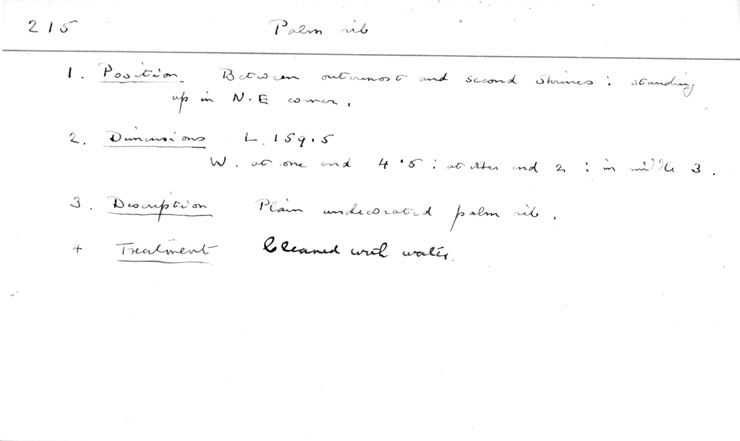 215 Palm rib
1. Position Between outermost and second shrines : standing
up in N.E corner.
2. Dimensions L. 159.5
W. at one end 4.5 : at other end 2 : in middle 3.
3. Description Plain undecorated palm rib.
4 Treatment Cleaned with water.